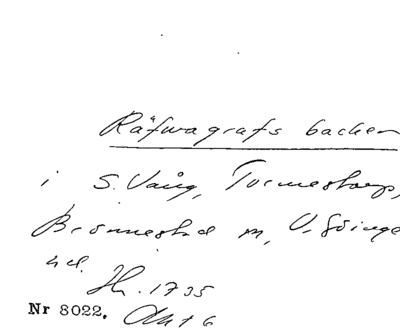 Räfwagrafs backen
i S. Vång, Tormestorp,
Brönnestad sn, V. Göinge
hd.
Jh. 1735
Nr 8022. Akt 6